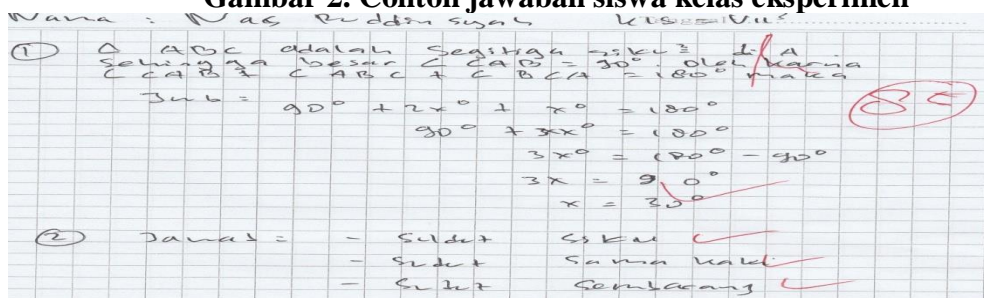 Gambar 2. Contoh jawaban siswa kelas eksperimen
Nama : Nas Ruddin syah Kls = VII
① Δ ABC adalah segitiga siku² di A
Sehingga besar < CAB = 90°. oleh karna
< CAB + < ABC + < BCA = 180° maka
Jwb = 90° + 2x° + x° = 180°
90° + 3x° = 180°
3x° = 180° - 90°
3x = 90°
x = 30°
85
② Jawab = - Sudut siku
- Sudut sama kaki
- Sudut sembarang